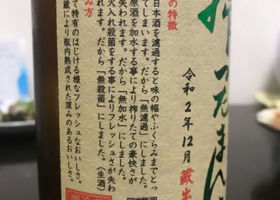 の特徴
日本酒を濾過すると味の幅やふくらみまでとっ
てしまいます。だから「無濾過」にしました。
原酒を加水する事により搾りたての豪快さが
失われます。だから「無加水」にしました。
火入れ殺菌をする事によりフレッシュさが失わ
れます。だから「無殺菌」にしました。(生酒)
み方
て特有のはじける様なフレッシュなおいしさ。
蔵により瓶内熟成された深みのあるおいしさ。
令和2年12月
蔵出
ったまん